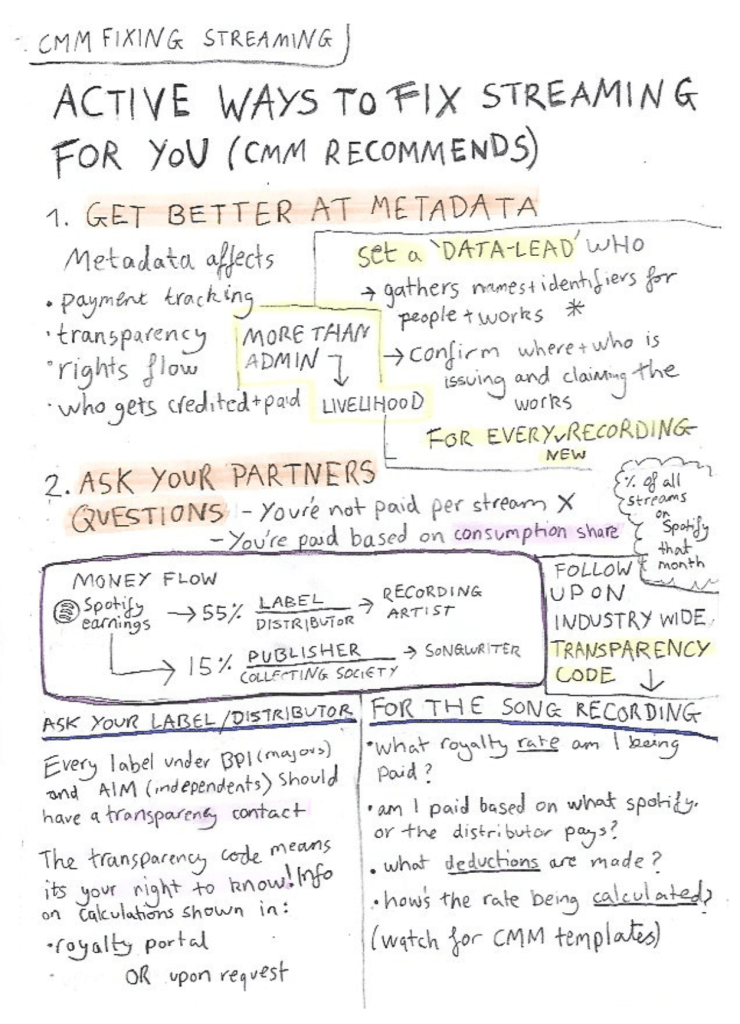 CMM FIXING STREAMING
ACTIVE WAYS TO FIX STREAMING
FOR YOU (CMM RECOMMENDS)
1. GET BETTER AT METADATA
Metadata affects
• payment tracking
• transparency
• rights flow
• who gets credited + paid
MORE THAN
ADMIN
↓
LIVELIHOOD
Set a 'DATA-LEAD' WHO
→ gathers names + identifiers for
people + works *
→ Confirm where + who is
issuing and claiming the
works
FOR EVERY RECORDING
NEW
2. ASK YOUR PARTNERS
QUESTIONS - You're not paid per stream X
- You're paid based on consumption share
% of all
streams
on
Spotify
that
month
MONEY FLOW
Spotify
earnings
→ 55% LABEL → RECORDING
DISTRIBUTOR ARTIST
→ 15% PUBLISHER → SONGWRITER
COLLECTING SOCIETY
FOLLOW
UP ON
INDUSTRY WIDE
TRANSPARENCY
CODE ↓
ASK YOUR LABEL/DISTRIBUTOR
Every label under BPI (majors)
and AIM (independents) should
have a transparency contact
The transparency code means
its your right to know! Info
on calculations shown in:
• royalty portal
• OR upon request
FOR THE SONG RECORDING
• what royalty rate am I being
paid?
• am I paid based on what spotify
or the distributor pays?
• what deductions are made?
• how's the rate being calculated?
(watch for CMM templates)